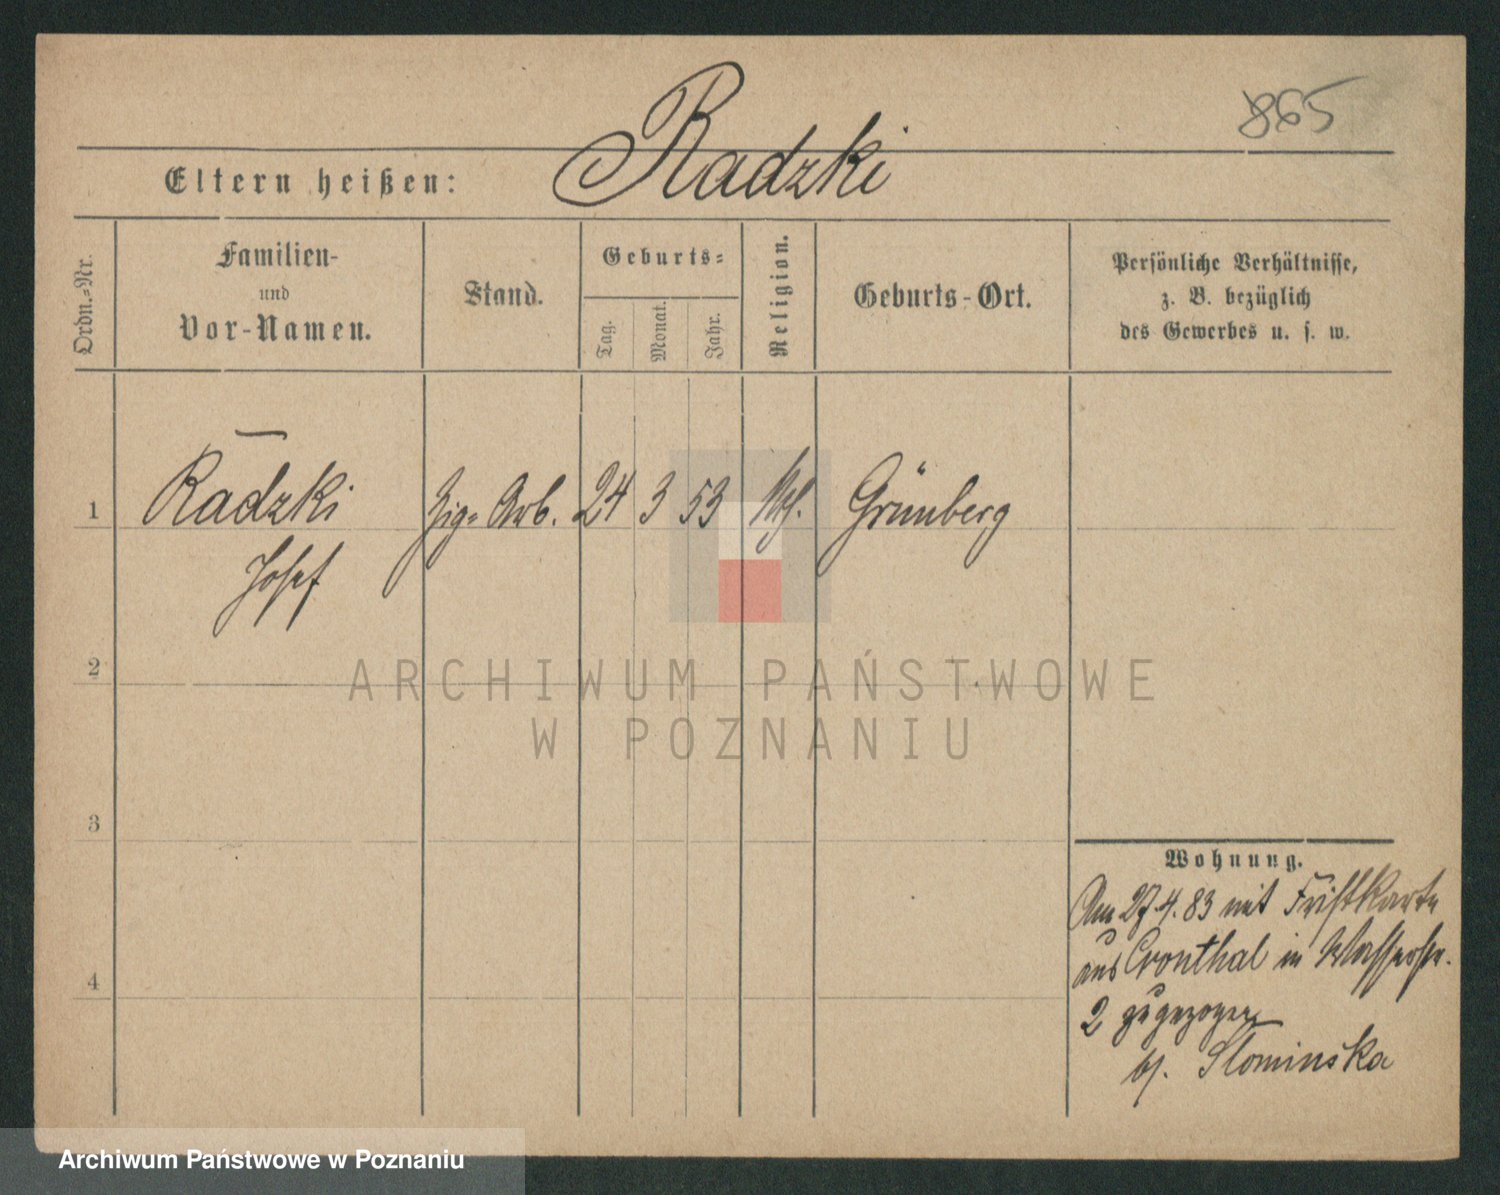 865
Radzki
Eltern heißen:
Ordn.-Nr.
Familien-
und
Vor-Namen.
Stand.
Geburts-
Tag.
Monat.
Jahr.
Religion.
Geburts-Ort.
Persönliche Verhältnisse,
z. B. bezüglich
des Gewerbes u. s. w.
1 Radzki Zig- Arb. 24 3 53 Grünberg
Josef
2
ARCHIWUM PAŃSTWOWE
W POZNANIU
3
Wohnung.
Am 27.4.83 mit Fristkarte
aus Cronthal in Wasserstr.
4
2 zugezogen
bei Slominska
Archiwum Państwowe w Poznaniu